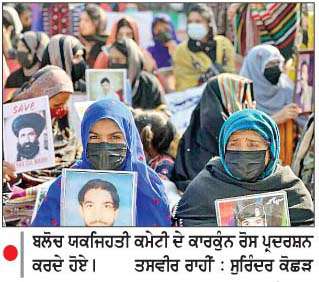 SAVE
ਬਲੋਚ ਯਕਜਿਹਤੀ ਕਮੇਟੀ ਦੇ ਕਾਰਕੁੰਨ ਰੋਸ ਪ੍ਰਦਰਸ਼ਨ
ਕਰਦੇ ਹੋਏ। ਤਸਵੀਰ ਰਾਹੀਂ : ਸੁਰਿੰਦਰ ਕੋਛੜ